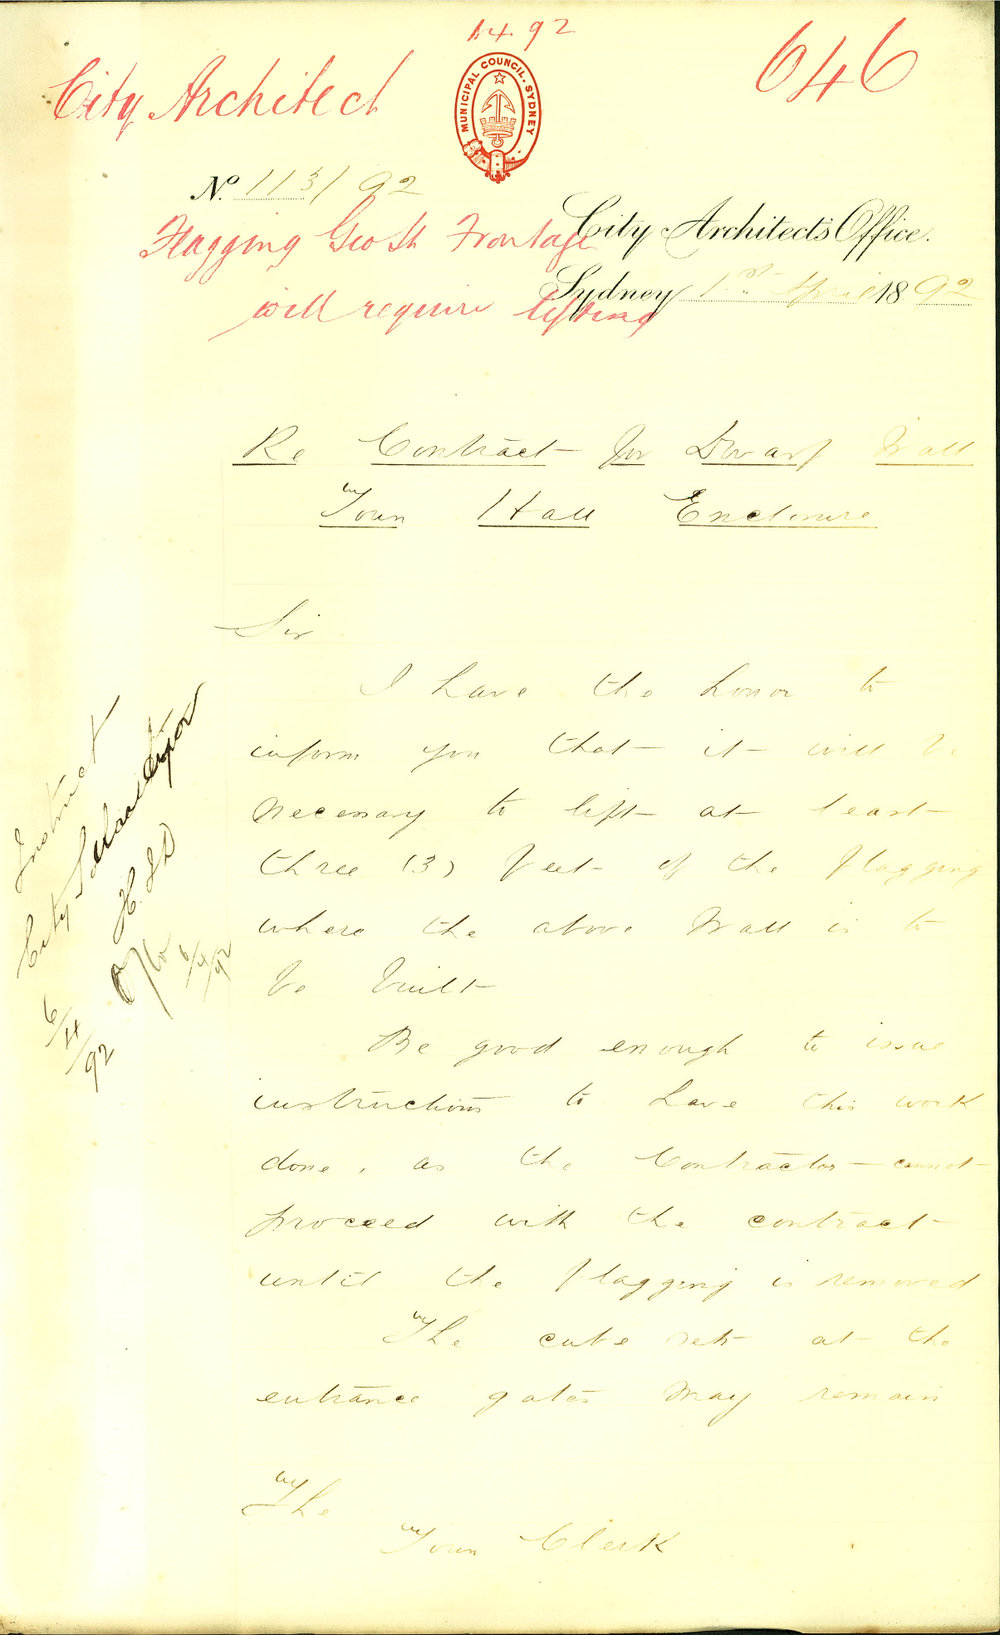 1 4 92
646
City Architect
MUNICIPAL COUNCIL. SYDNEY
No. 113/92
City Architect's Office.
Flagging Geo St Frontage
Sydney 1st April 1892
will require lifting
Re Contract for Dwarf Wall
Town Hall Enclosure
Sir
I have the honor to
inform you that it will be
necessary to lift at least
three (3) feet of the flagging
where the above Wall is to
be built
Be good enough to issue
instructions to have this work
done, as the Contractor cannot
proceed with the contract
until the flagging is removed
The cube sets at the
entrance gates may remain
The
Town Clerk
Instruct
City
6/4/92
6/4/92